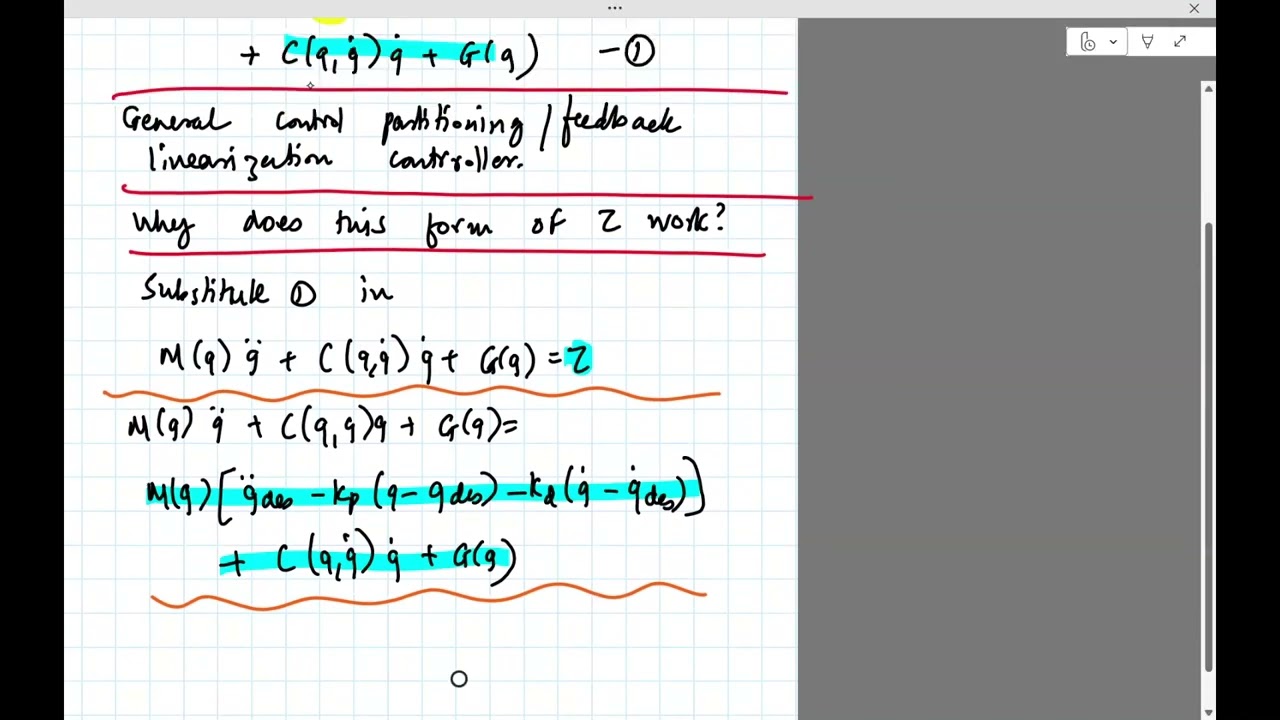 + C(q,q̇) q̇ + G(q) -①
General control partitioning / feedback
linearization controller.
Why does this form of τ work?
Substitute ① in
M(q) q̈ + C(q,q̇) q̇ + G(q) = τ
M(q) q̈ + C(q,q)q + G(q)=
M(q)[q̈des - kp (q - qdes) - kd (q̇ - q̇des)]
+ C(q,q̇) q̇ + G(q)